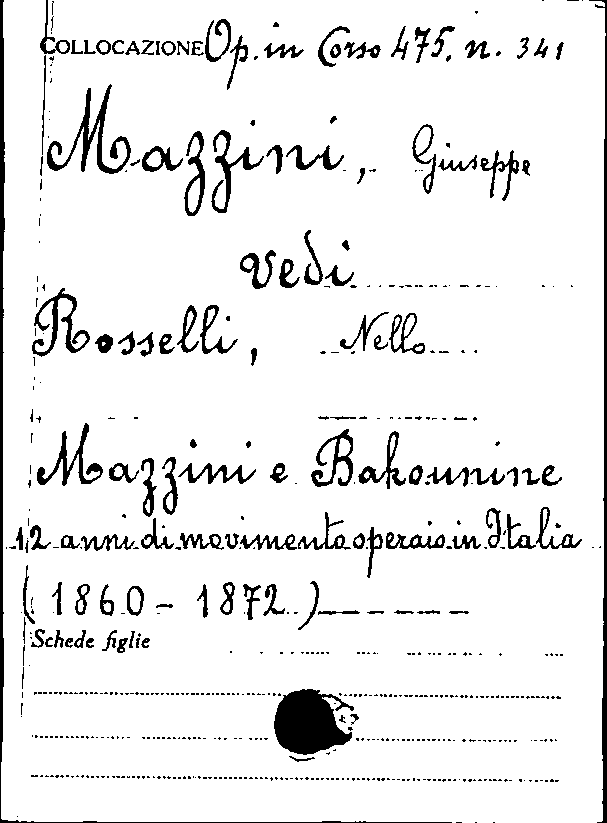 COLLOCAZIONE Op. in Corso 475. n. 341
Mazzini, Giuseppe
vedi
Rosselli, Nello
Mazzini e Bakounine
12 anni di movimento operaio in Italia
(1860 - 1872)
Schede figlie